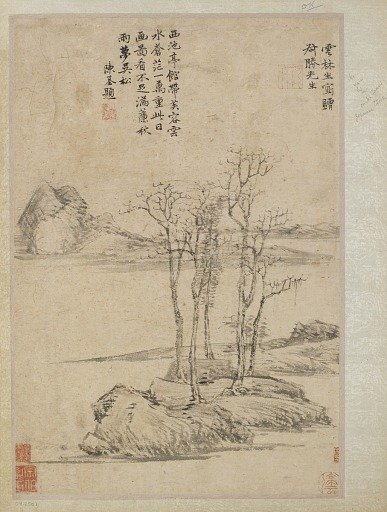 雲林生寫贈
勝先生
西池亭館帶芙容雲
水蒼茫一萬重此日
画圖看不足滿簾秋
雨夢吳松
陳基題